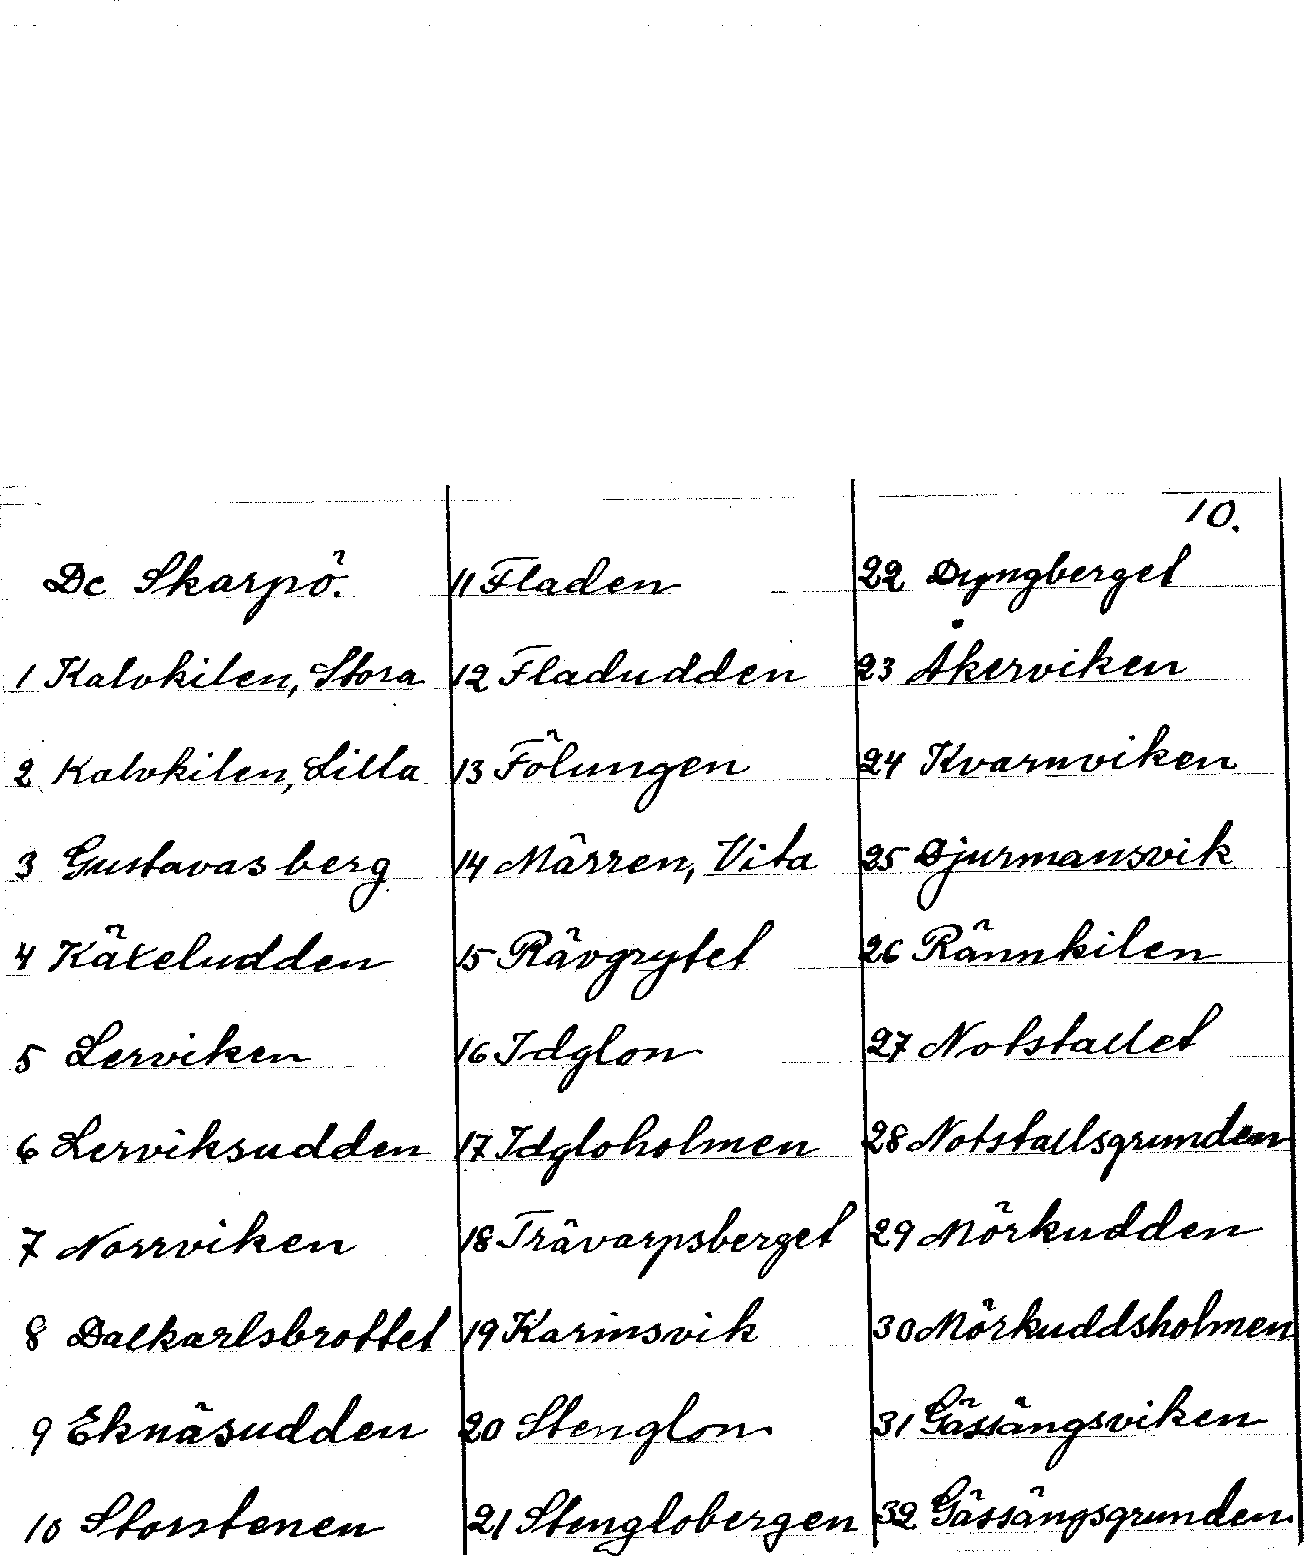 10.
Dc Skarpö.
1 Kalvkilen, Stora
2 Kalvkilen, Lilla
3 Gustavasberg
4 Käxeludden
5 Lerviken
6 Lerviksudden
7 Norrviken
8 Dalkarlsbrottet
9 Eknäsudden
10 Storstenen
11 Fladen
12 Fladudden
13 Fölungen
14 Märren, Vita
15 Rävgrytet
16 Idglon
17 Idgloholmen
18 Trävarpsberget
19 Karinsvik
20 Stenglon
21 Stenglobergen
22 Dyngberget
23 Åkerviken
24 Kvarnviken
25 Djurmansvik
26 Rännkilen
27 Notstallet
28 Notstallsgrunden
29 Mörkudden
30 Mörkuddsholmen
31 Gässängsviken
32 Gässängsgrunden